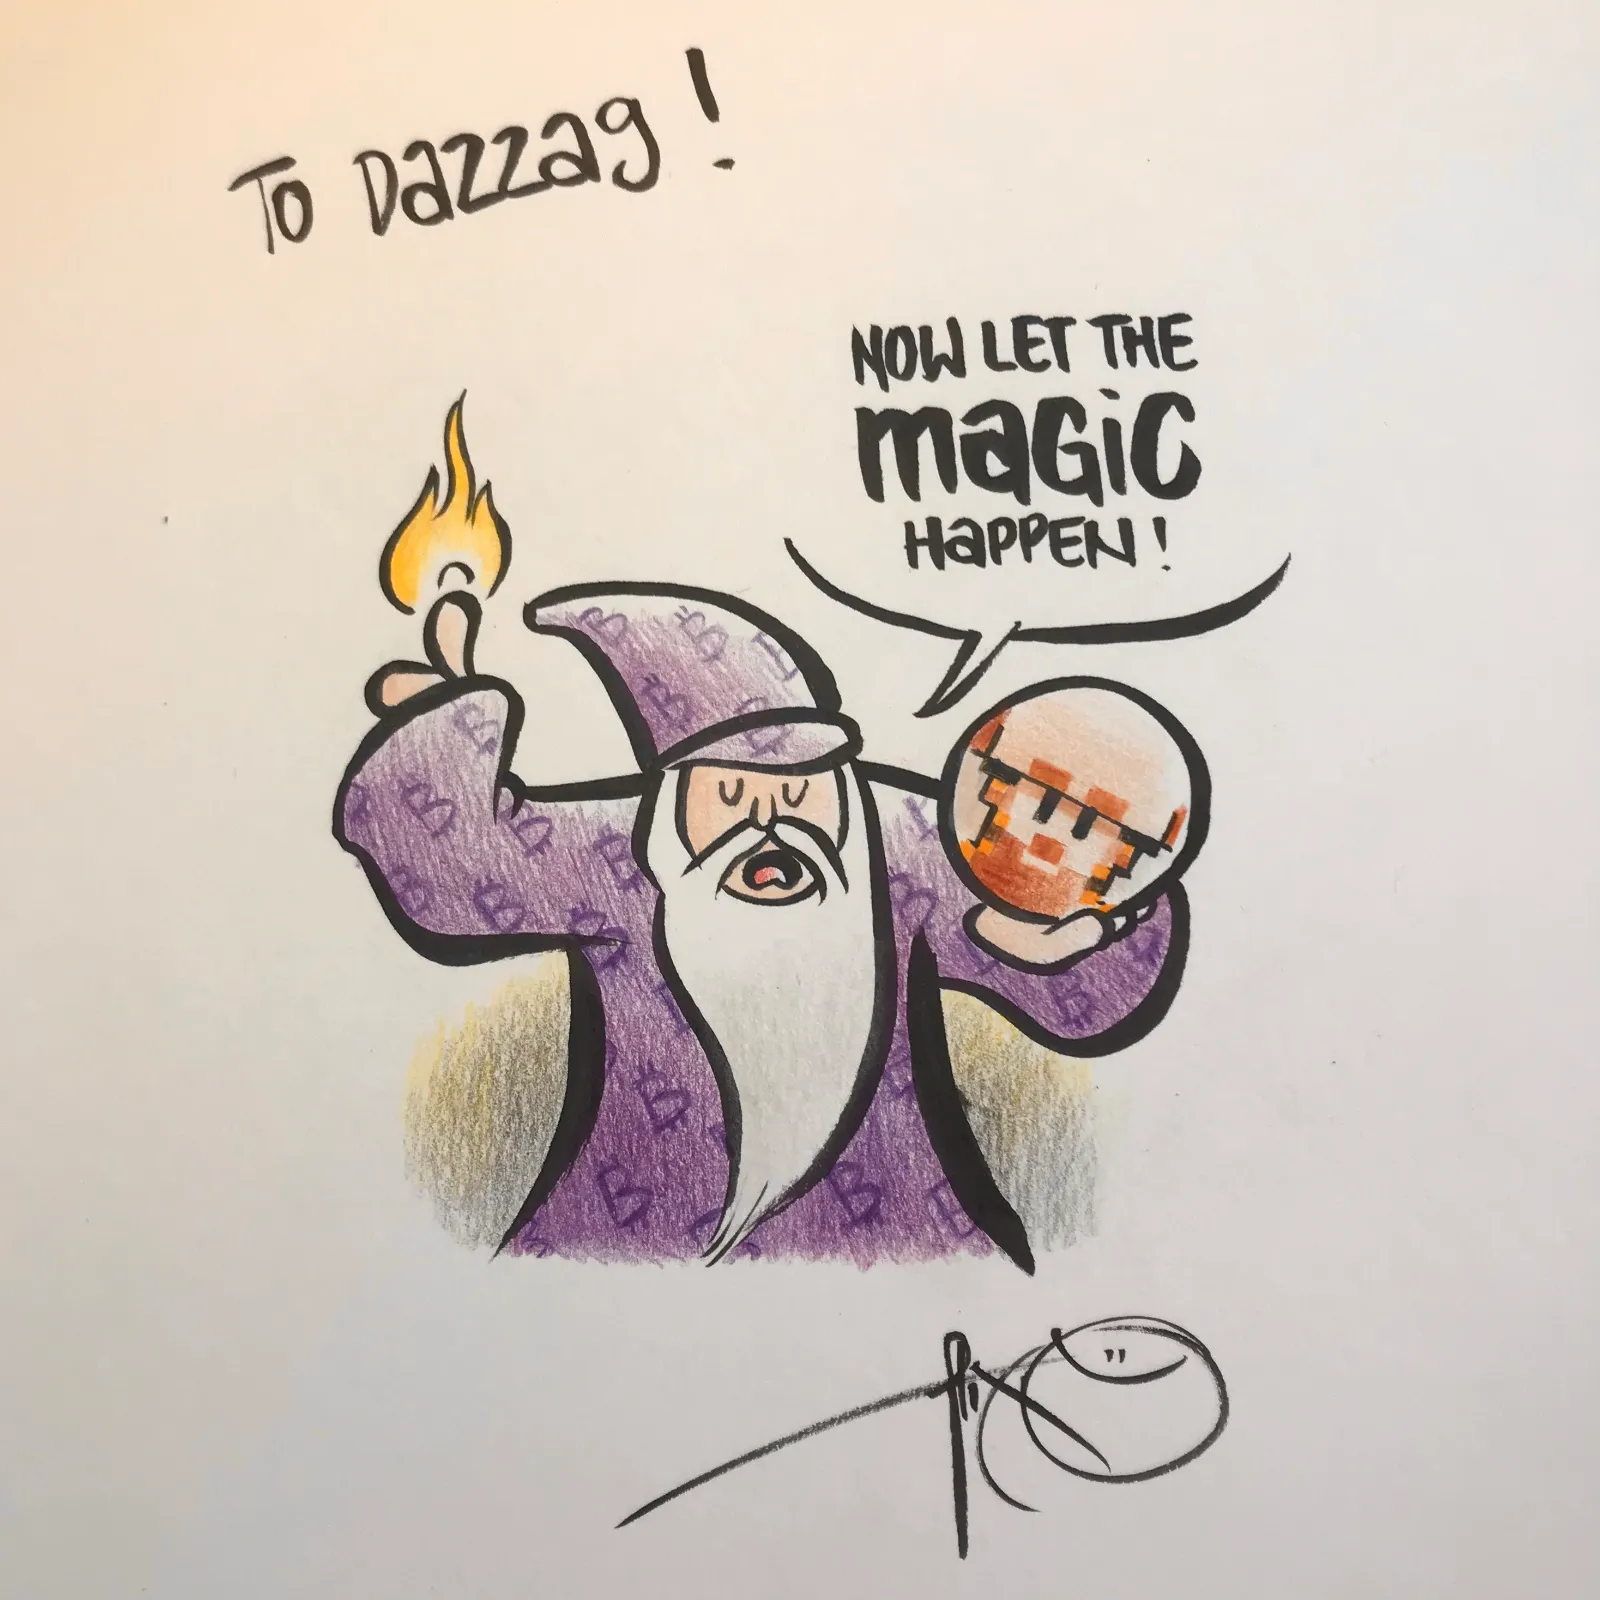 To Dazzag!
NOW LET THE
magic
Happen!